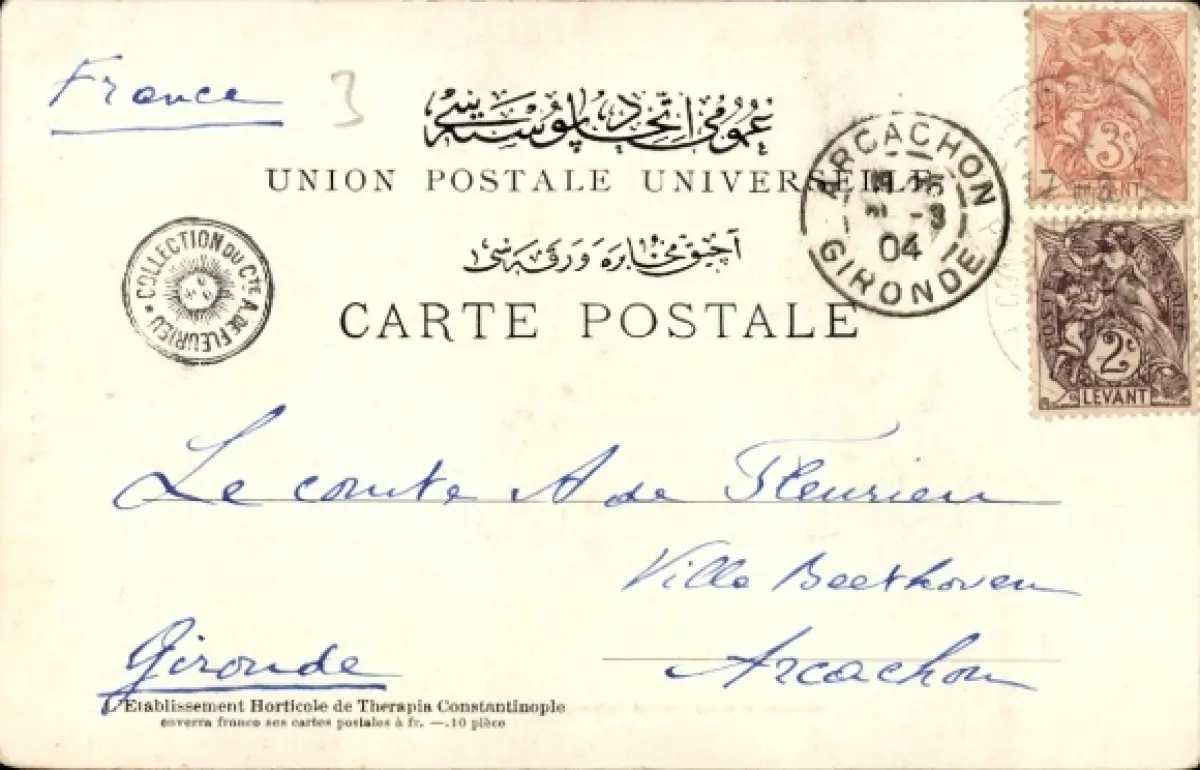 France
3
عمومى اتحاد پوسته سى
UNION POSTALE UNIVERSELLE
آچيق مخابره ورقه سى
CARTE POSTALE
COLLECTION DU Cte A. DE FLEURIEU
ARCACHON
-3
04
GIRONDE
3c
2c
LEVANT
Le comte A de Fleurieu
Villa Beethoven
Arcachon
Gironde
L'Etablissement Horticole de Therapia Constantinople
enverra franco ses cartes postales à fr. —.10 pièce